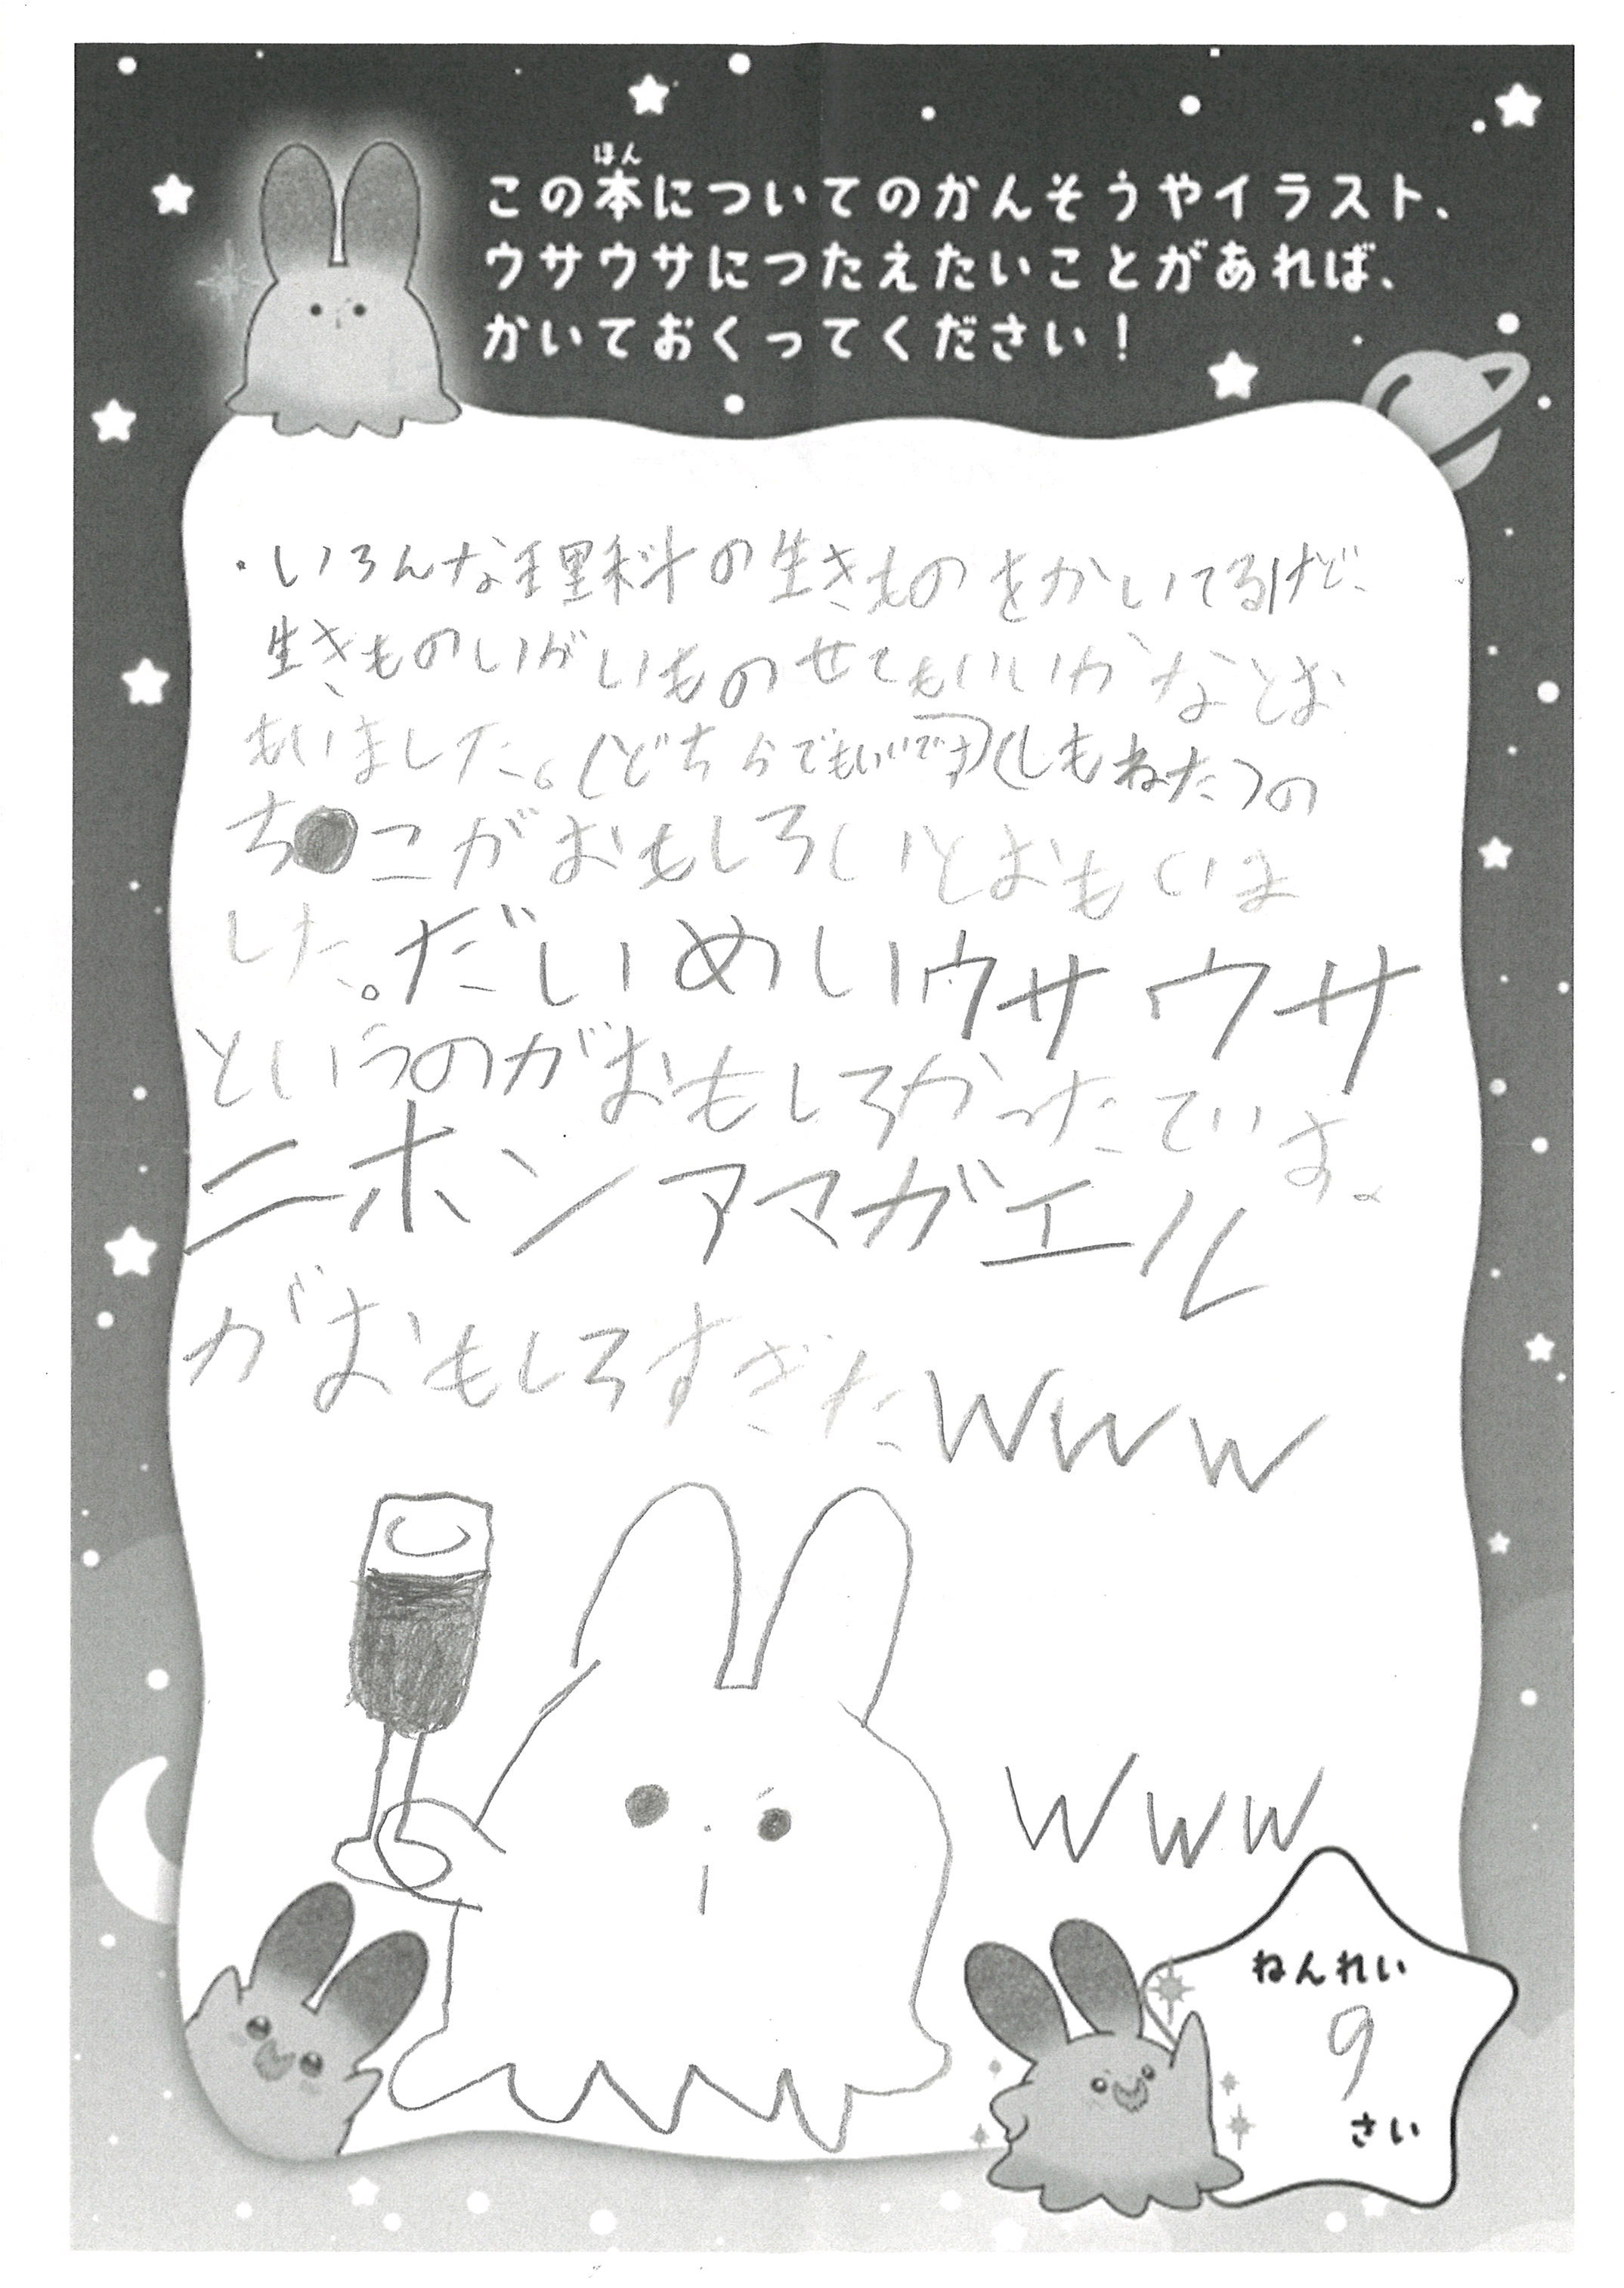 ほん
この本についてのかんそうやイラスト、
ウサウサにつたえたいことがあれば、
かいておくってください！
・いろんな理科の生きものをかいてるけど、
生きものいがいものせてもいいかなとお
もいました。(どちらでもいいです)(しもねたつの
ち●こがおもしろいとおもいま
した。だいめいウサウサ
というのがおもしろかったでいす。
ニホンアマガエル
がおもしろすぎたwww
www
ねんれい
9
さい